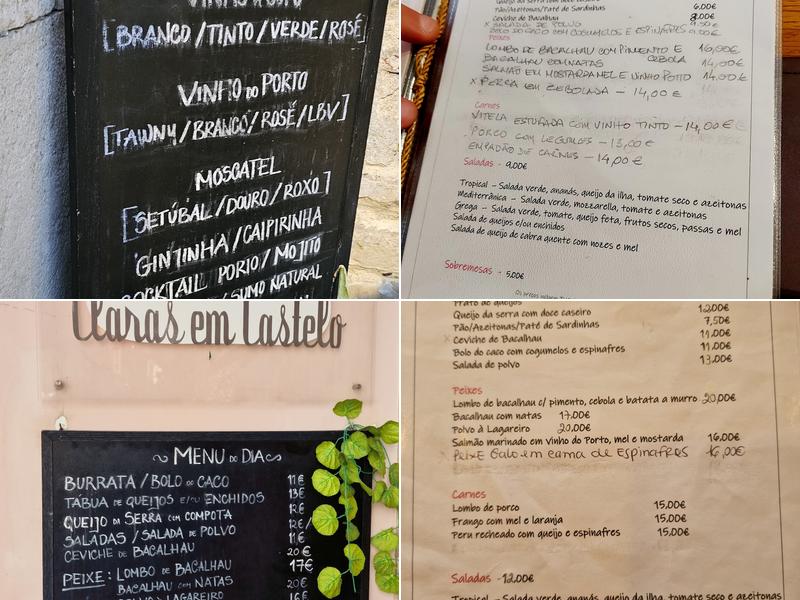 [BRANCO / TINTO / VERDE / ROSÉ]
VINHO DO PORTO
[TAWNY / BRANCO / ROSÉ / LBV]
MOSCATEL
[SETÚBAL / DOURO / ROXO]
GINJINHA / CAIPIRINHA
COCKTAIL PORIO / MOJITO
SUMO NATURAL
Queijo da serra com doce caseiro
Pão/Azeitonas/Paté de Sardinhas 6,00€
Ceviche de Bacalhau
x SALADA DE POLVO 9,50€
BOLO DO CACO COM COGUMELOS E ESPINAFRES 9,00€
Peixes
LOMBO DE BACALHAU COM PIMENTO E CEBOLA 16,00€
BACALHAU COM NATAS 14,00€
SALMÃO EM MOSTARDA MEL E VINHO PORTO 14,00€
- 14,00€
Carnes
VITELA ESTUFADA COM VINHO TINTO - 14,00€
PORCO COM LEGUMES - 13,00€
EMPADÃO DE CARNES - 14,00€
Saladas - 9,00€
Tropical - Salada verde, ananás, queijo da ilha, tomate seco e azeitonas
Mediterrânica - Salada verde, mozzarella, tomate e azeitonas
Grega - Salada verde, tomate, queijo feta, frutos secos, passas e mel
Salada de queijos e/ou enchidos
Salada de queijo de cabra quente com nozes e mel
Sobremesas - 5,00€
Claras em Castelo
MENU DO DIA
BURRATA / BOLO DO CACO 11€
TÁBUA DE QUEIJOS E/OU ENCHIDOS 13€
QUEIJO DA SERRA COM COMPOTA 12€
SALADAS / SALADA DE POLVO 12€/11€
CEVICHE DE BACALHAU
PEIXE: LOMBO DE BACALHAU 20€
BACALHAU COM NATAS 17€
20€
16€
Prato de queijos
Queijo da serra com doce caseiro 12,00€
Pão/Azeitonas/Paté de Sardinhas 7,50€
Ceviche de Bacalhau 11,00€
Bolo do caco com cogumelos e espinafres 11,00€
Salada de polvo 13,00€
Peixes
Lombo de bacalhau c/ pimento, cebola e batata a murro 20,00€
Bacalhau com natas 17,00€
Polvo à Lagareiro 20,00€
Salmão marinado em Vinho do Porto, mel e mostarda 16,00€
PEIXE Galo em cama de Espinafres 16,00€
Carnes
Lombo de porco 15,00€
Frango com mel e laranja 15,00€
Peru recheado com queijo e espinafres 15,00€
Saladas - 12,00€
Tropical - Salada verde, ananás, queijo da ilha, tomate seco e azeitonas